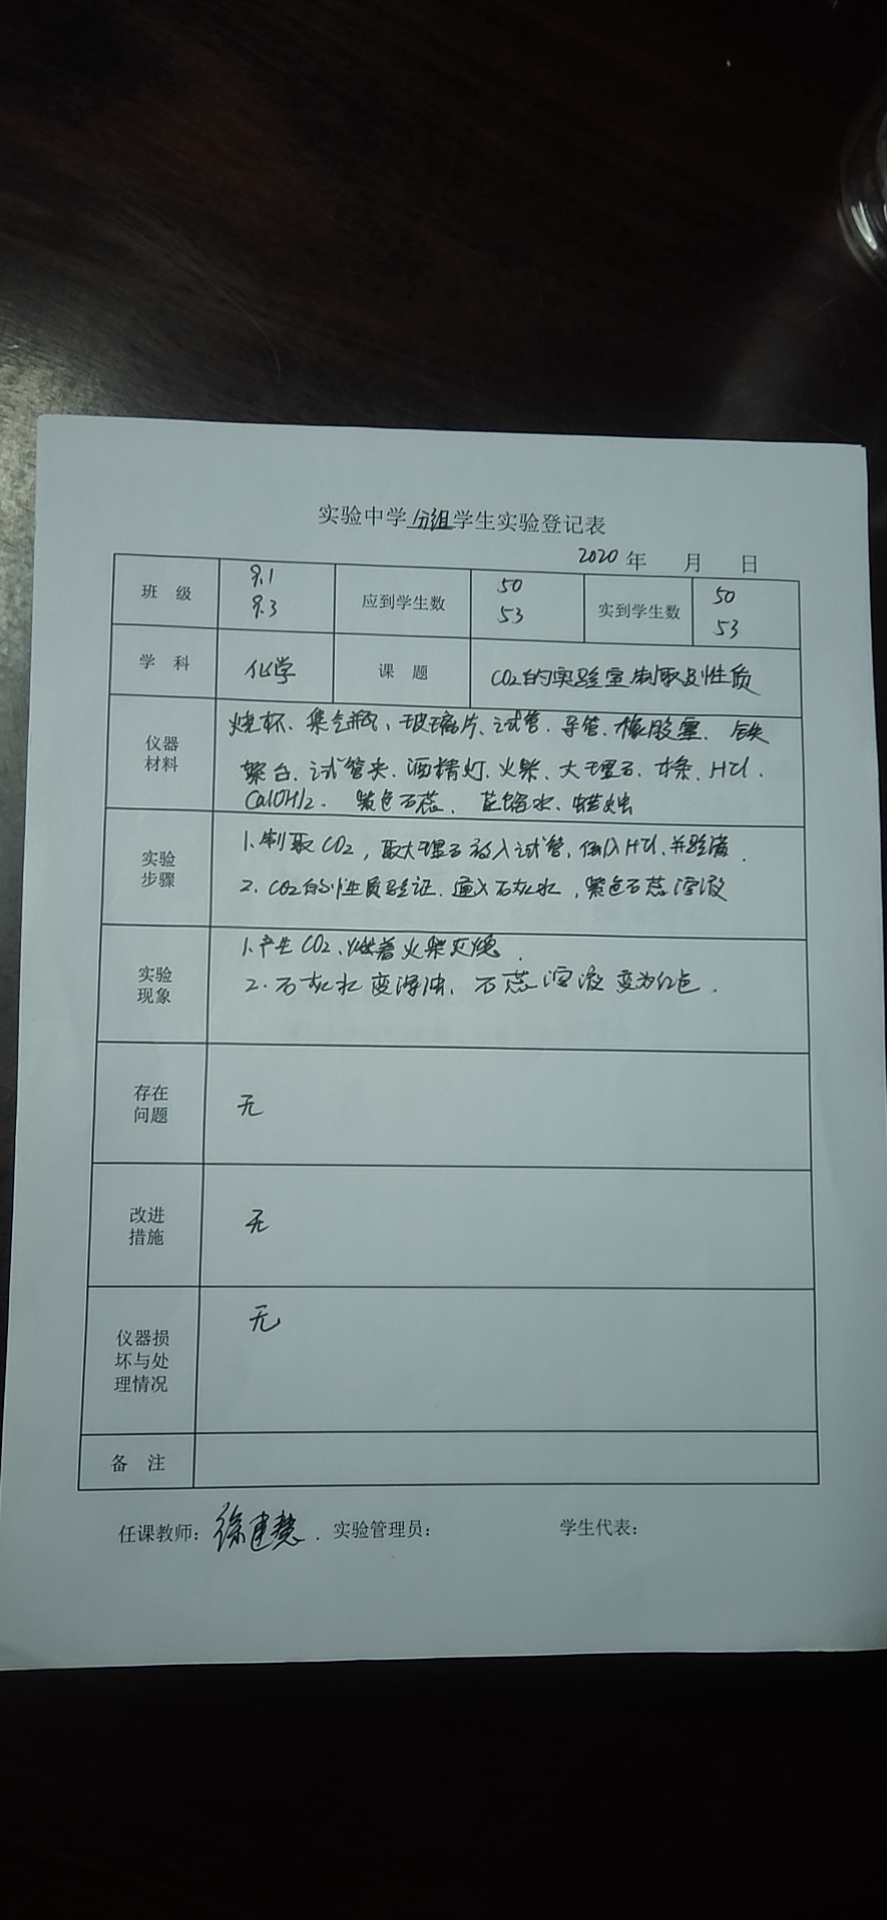 实验中学分组学生实验登记表
2020 年 月 日
班 级 9.1 9.3 应到学生数 50 53 实到学生数 50 53
学 科 化学 课 题 CO2的实验室制取及性质
仪器材料
烧杯、集气瓶、玻璃片、试管、导管、橡胶塞、铁
架台、试管夹、酒精灯、火柴、大理石、木条、HCl、
Ca(OH)2、紫色石蕊、蒸馏水、蜡烛
实验步骤
1.制取CO2，取大理石放入试管，HCl、并验满.
2.CO2的性质验证.通入石灰水，紫色石蕊溶液
实验现象
1.产生CO2、燃着火柴灭熄.
2.石灰水变浑浊、石蕊溶液变为红色.
存在问题
无
改进措施
无
仪器损坏与处理情况
无
备 注
任课教师：徐建慧. 实验管理员： 学生代表：